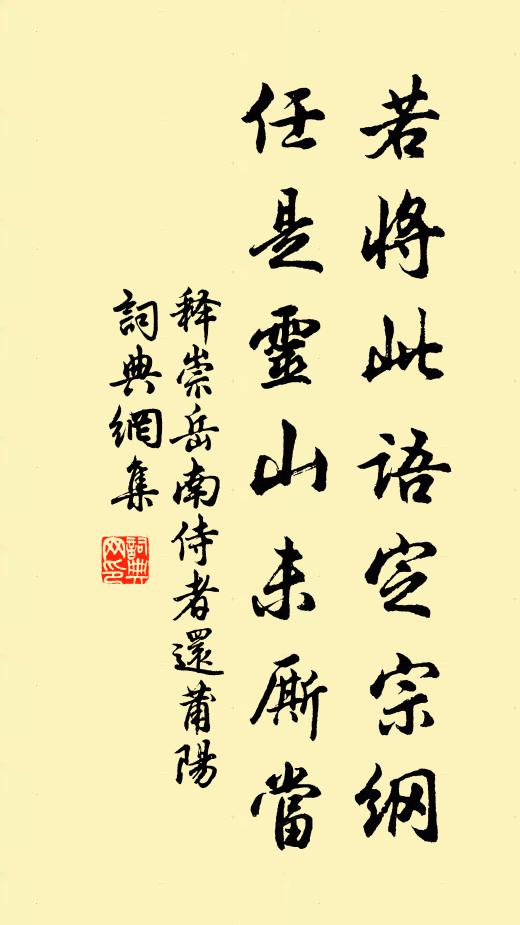 若将此语定宗纲
任是靈山未厮當
释崇岳南侍者還莆陽
詞典網集
詞典網印